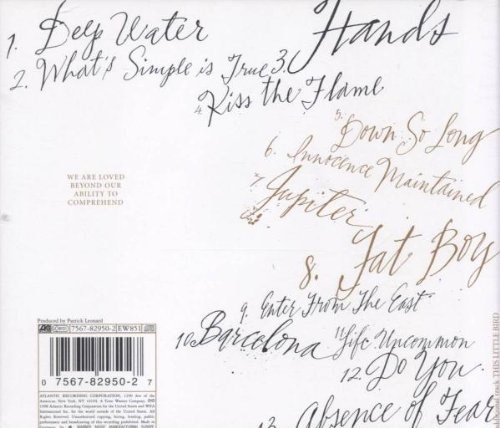 1. Deep Water
2. What's Simple is True
3. Hands
4. Kiss the Flame
5. Down So Long
6. Innocence Maintained
7. Jupiter
8. Fat Boy
9. Enter From The East
10 Barcelona
11 Life Uncommon
12. Do You
13 Absence of Fear
WE ARE LOVED
BEYOND OUR
ABILITY TO
COMPREHEND
Produced by Patrick Leonard
7567-82950-2
0 7567-82950-2 7
ATLANTIC RECORDING CORPORATION,
THIS LITTLE BIRD